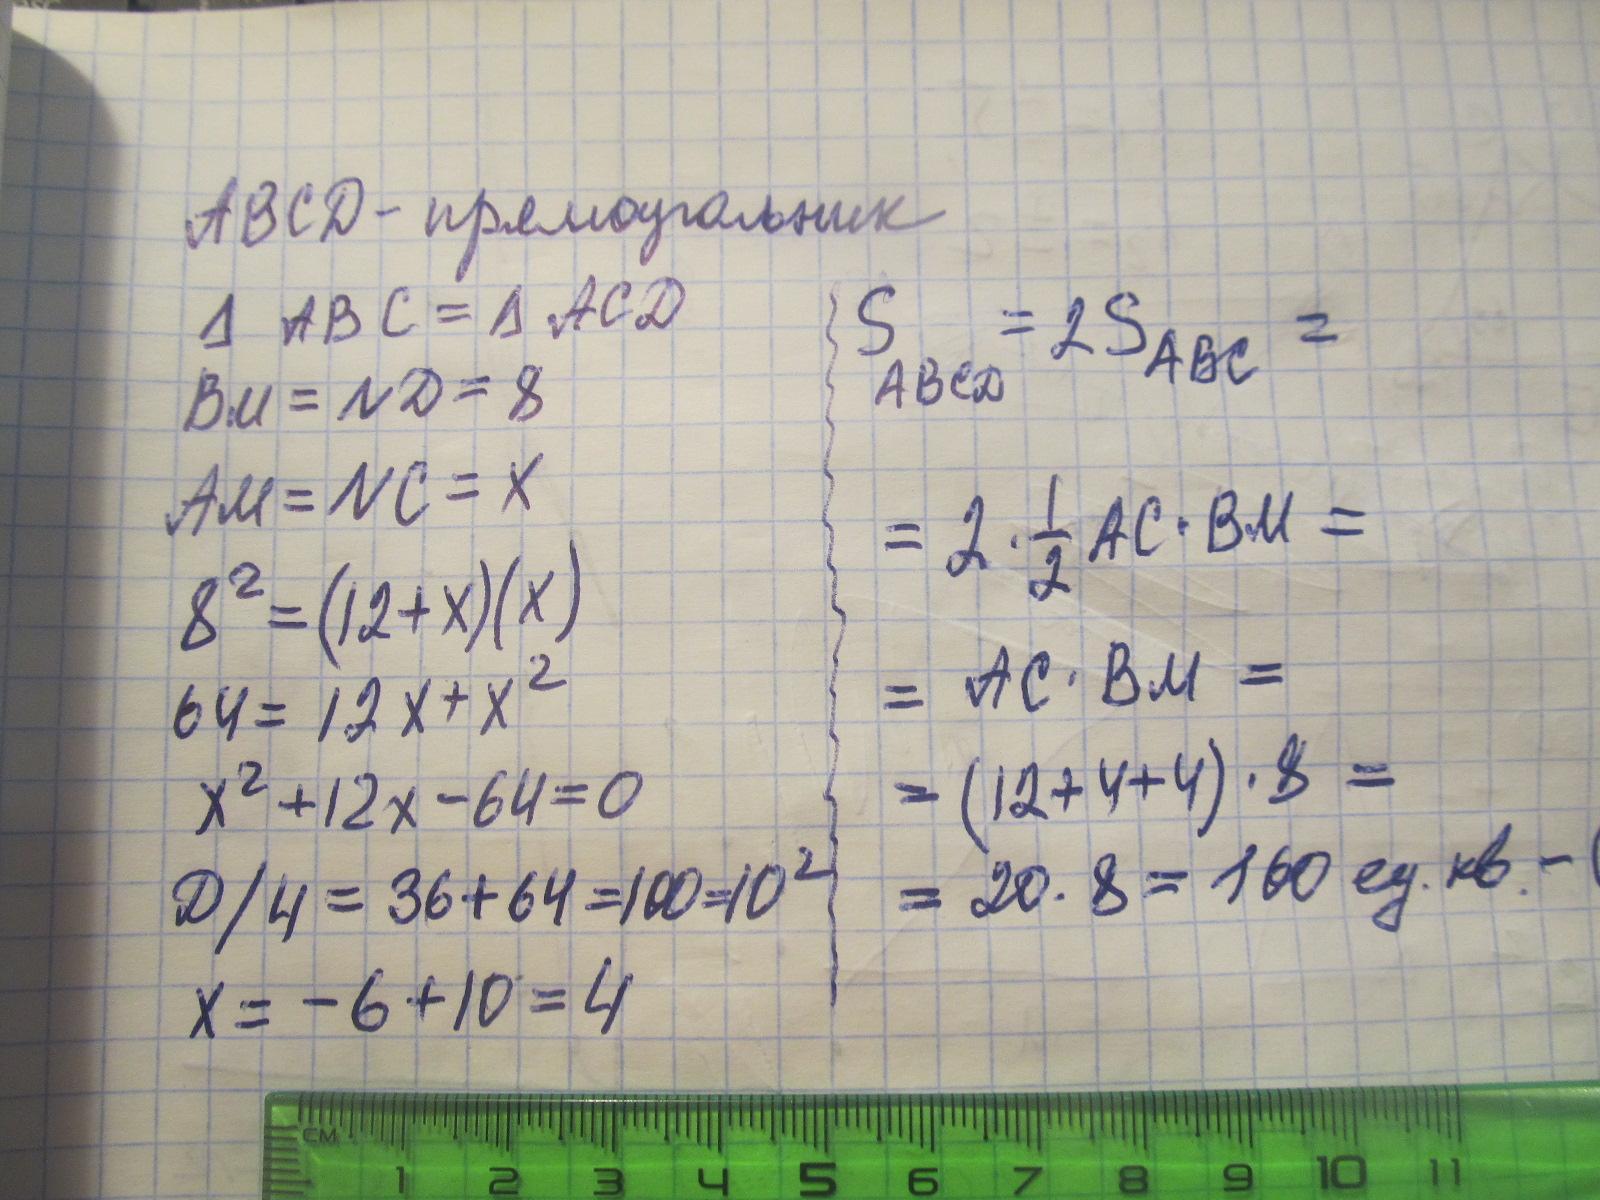 ABCD - прямоугольник
Δ ABC = Δ ACD
BM = ND = 8
AM = NC = x
8² = (12+x)(x)
64 = 12x + x²
x² + 12x - 64 = 0
D/4 = 36 + 64 = 100 = 10²
x = -6 + 10 = 4
S ABCD = 2S ABC =
= 2 · 1/2 AC · BM =
= AC · BM =
= (12+4+4) · 8 =
= 20 · 8 = 160 ед. кв. - (
см 1 2 3 4 5 6 7 8 9 10 11